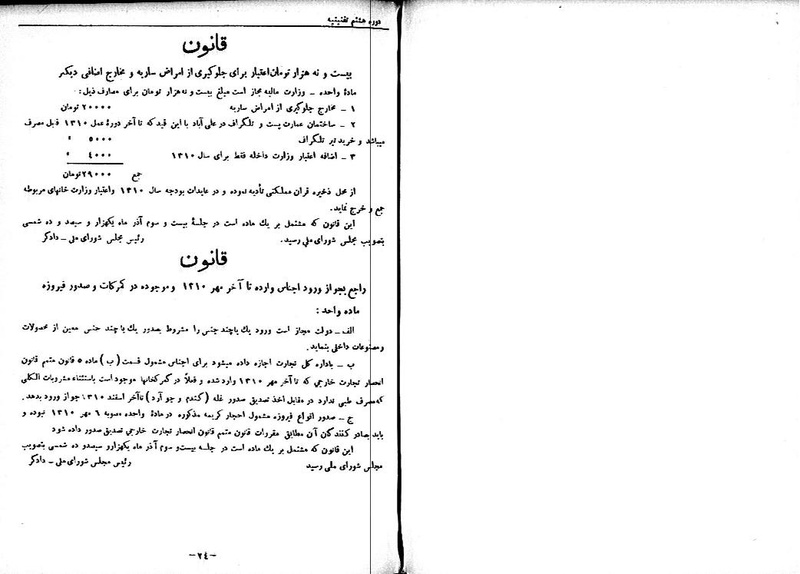 دوره هشتم تقنینیه
قانون
بیست و نه هزار تومان اعتبار برای جلوگیری از امراض ساریه و مخارج اضافی دیگر
مادۀ واحده – وزارت مالیه مجاز است مبلغ بیست و نه هزار تومان برای مصارف ذیل :
۱ – مخارج جلوگیری از امراض ساریه ۲۰۰۰۰ تومان
۲ – ساختمان عمارت پست و تلگراف در علی آباد با این قید که تا آخر دورۀ عمل ۱۳۱۰ قبل مصرف
میباشد و خرید تیر تلگراف ۵۰۰۰ "
۳ – اضافه اعتبار وزارت داخله فقط برای سال ۱۳۱۰ ۴۰۰۰ "
جمع ۲۹۰۰۰ تومان
از محل ذخیره قران مملکتی تأدیه نموده و در عایدات بودجه سال ۱۳۱۰ و اعتبار وزارت خانهای مربوطه
جمع و خرج نماید.
این قانون که مشتمل بر یك ماده است در جلسۀ بیست و سوم آذر ماه یکهزار و سیصد و ده شمسی
بتصویب مجلس شورای ملی رسید. رئیس مجلس شورای ملی – دادگر
قانون
راجع بجواز ورود اجناس وارده تا آخر مهر ۱۳۱۰ و موجوده در گمرکات و صدور فیروزه
ماده واحد :
الف – دولت مجاز است ورود یك یا چند جنس را مشروط بصدور یك یا چند جنس معین از محصولات
و مصنوعات داخلی بنماید.
ب – باداره کل تجارت اجازه داده میشود برای اجناس مشمول قسمت (ب) ماده ۵ قانون متمم قانون
انحصار تجارت خارجی که تا آخر مهر ۱۳۱۰ وارد شده و فعلاً در گمرکخانها موجود است باستثناء مشروبات الکلی
که مصرف طبی ندارد در مقابل اخذ تصدیق صدور غله (گندم و جو آرد) تا آخر اسفند ۱۳۱۰ جواز ورود بدهد.
ج – صدور انواع فیروزه مشمول احجار کریمه مذکوره در مادۀ واحده مصوبه ۶ مهر ۱۳۱۰ نبوده و
باید بصادر کنندگان آن مطابق مقررات قانون متمم قانون انحصار تجارت خارجی تصدیق صدور داده شود
این قانون که مشتمل بر یك ماده است در جلسه بیست و سوم آذر ماه یکهزار و سیصد و ده شمسی بتصویب
مجلس شورای ملی رسید رئیس مجلس شورای ملی – دادگر
–۲٤–